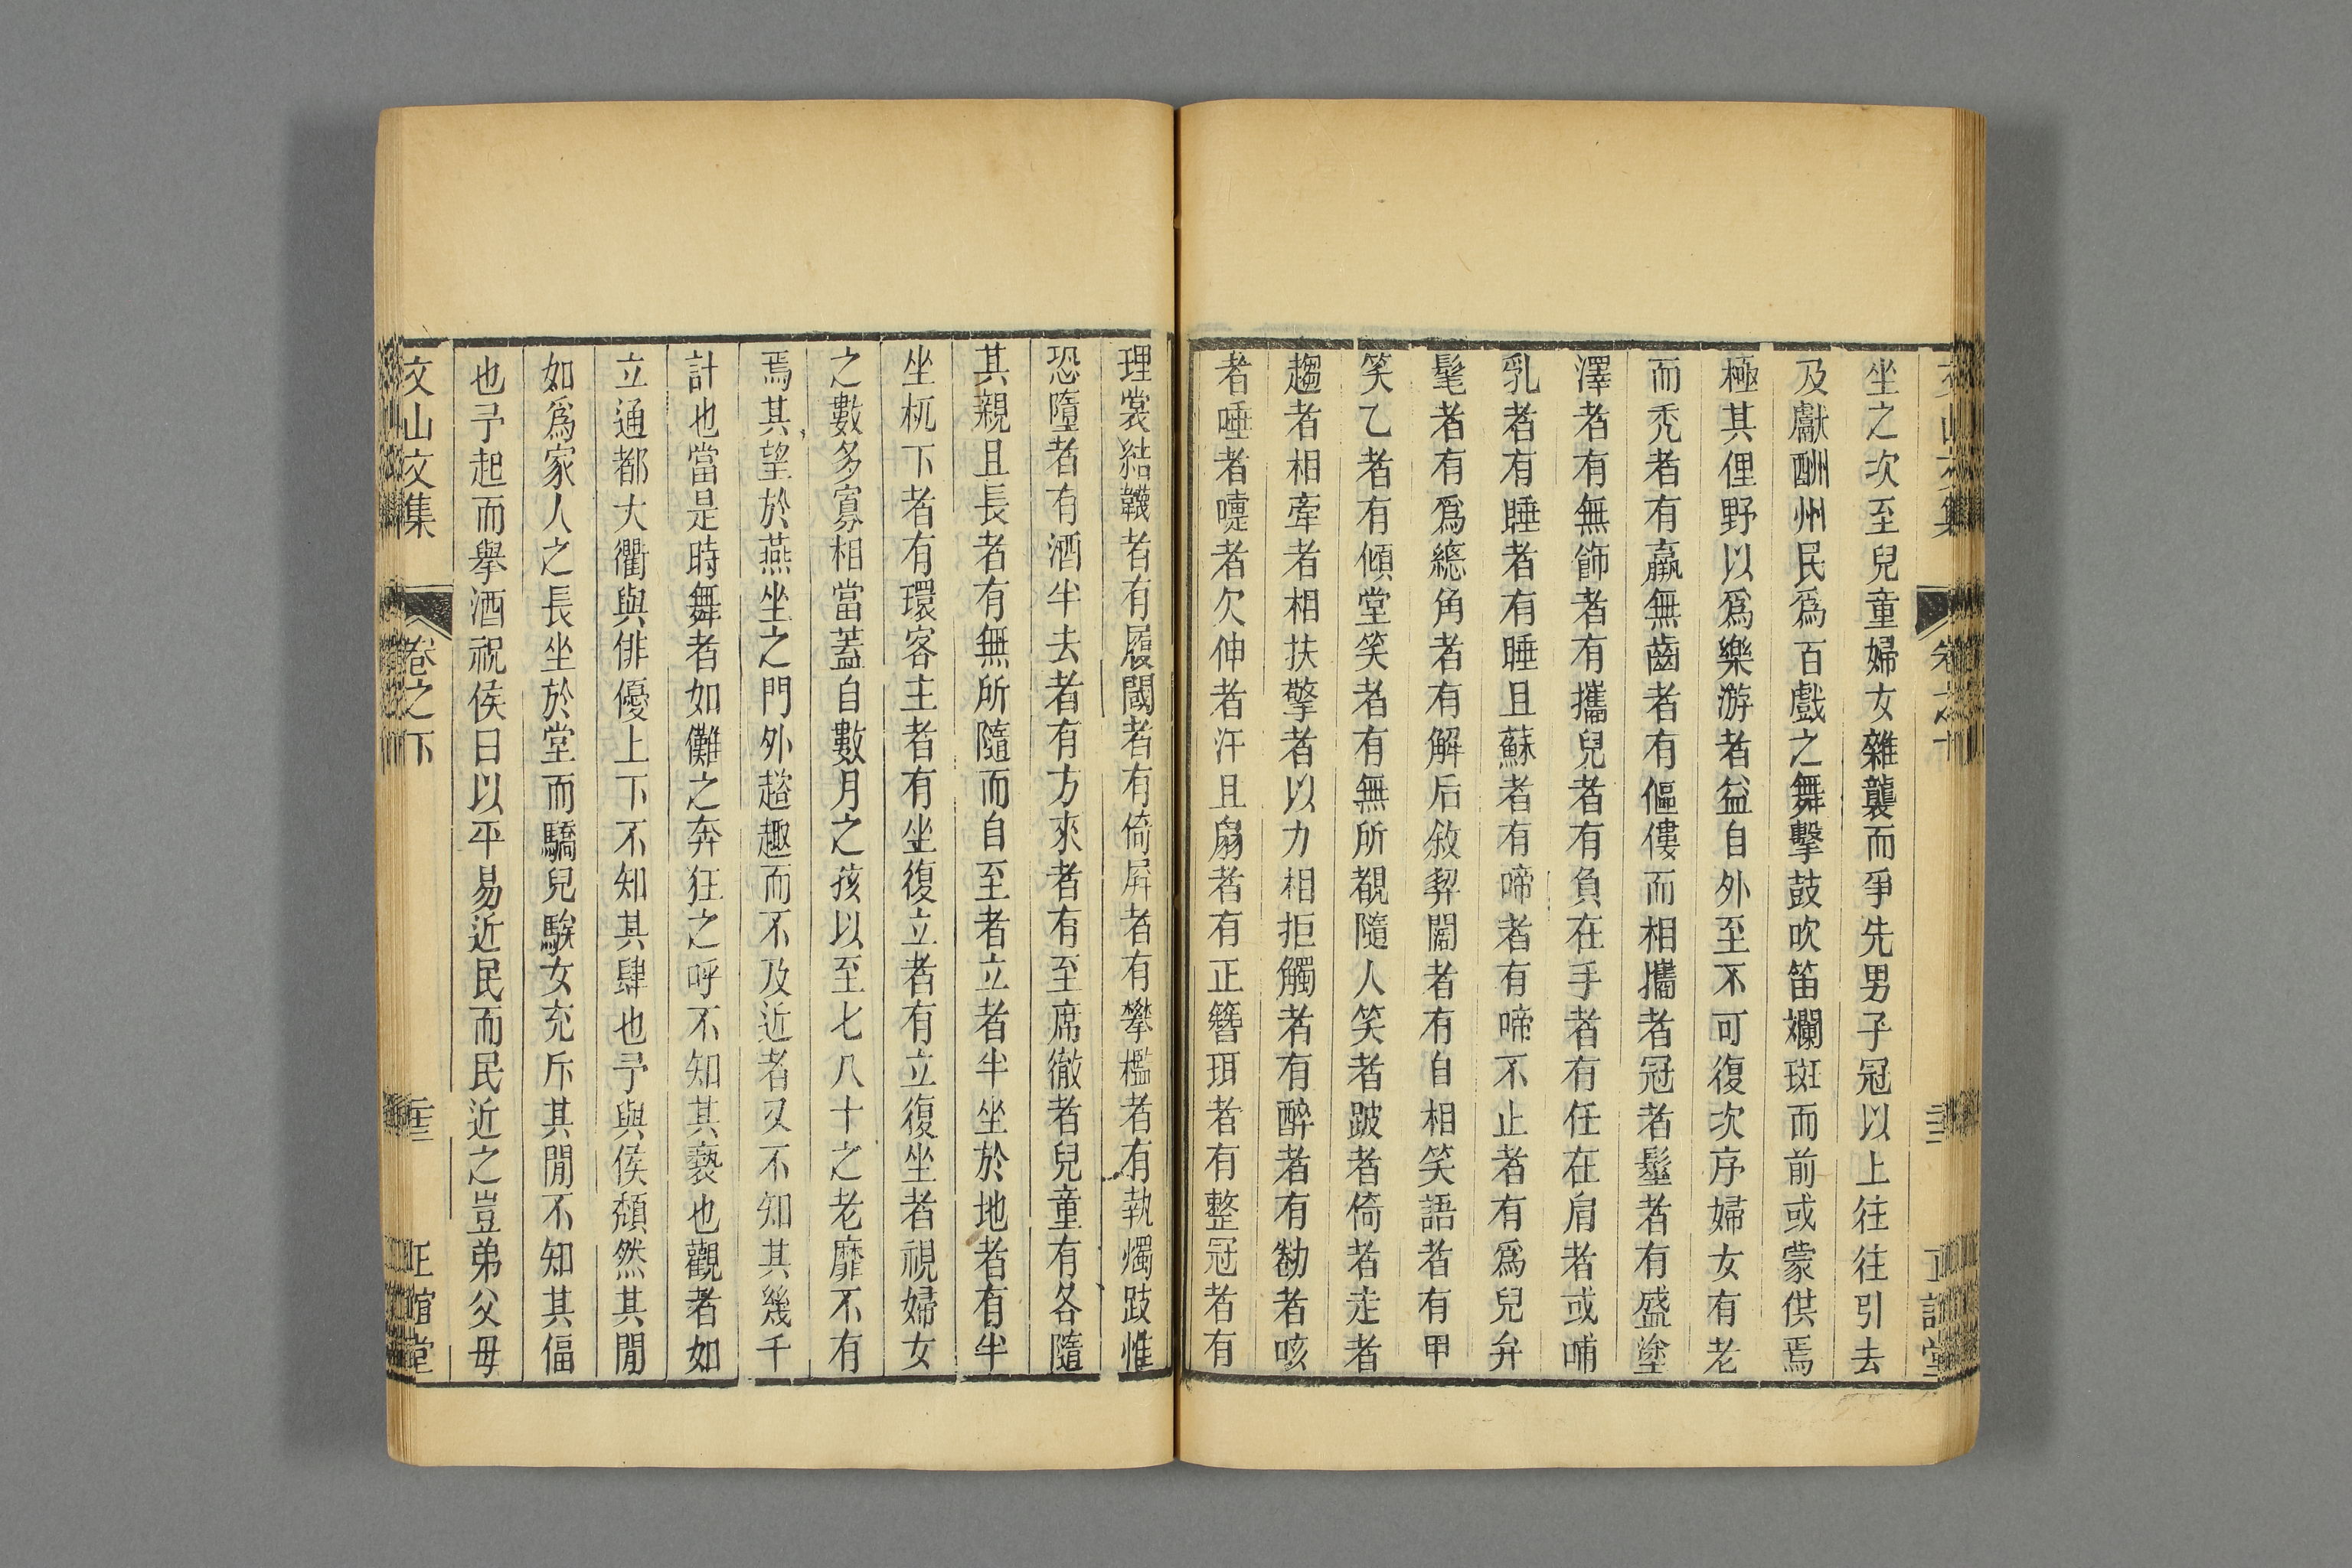 坐之次至兒童婦女雜襲而爭先男子冠以上往往引去
及獻酬州民爲百戲之舞擊鼓吹笛斕斑而前或蒙供焉
極其俚野以爲樂游者益自外至不可復次序婦女有老
而禿者有羸無齒者有傴僂而相攜者冠者髽者有盛塗
澤者有無飾者有攜兒者有負在手者有任在肩者或哺
乳者有睡者有睡且蘇者有啼者有啼不止者有爲兒弁
髦者有爲總角者有解后敘契闊者有自相笑語者有甲
笑乙者有傾堂笑者有無所覩隨人笑者跛者倚者走者
趨者相牽者相扶擎者以力相拒觸者有醉者有勌者咳
者唾者嚏者欠伸者汗且扇者有正簪珥者有整冠者有
理裳結韈者有履閾者有倚屏者有攀檻者有執燭跂惟
恐墮者有酒半去者有方來者有至席徹者兒童有各隨
其親且長者有無所隨而自至者立者半坐於地者有半
坐杌下者有環客主者有坐復立者有立復坐者視婦女
之數多寡相當蓋自數月之孩以至七八十之老靡不有
焉其望於燕坐之門外趨趣而不及近者又不知其幾千
計也當是時舞者如儺之奔狂之呼不知其褻也觀者如
立通都大衢與俳優上下不知其肆也予與侯頹然其間
如爲家人之長坐於堂而驕兒騃女充斥其閒不知其偪
也予起而舉酒祝侯曰以平易近民而民近之豈弟父母
文山文集 卷之下 二十三 堂